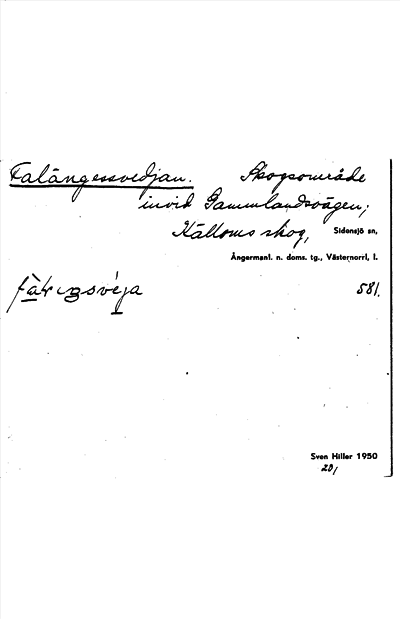 Falängessvedjan. Skogsområde
invid Gammlandsvägen;
Källoms skog, Sidensjö sn,
Ångermanl. n. doms. tg., Västernorrl. l.
581.
Sven Hiller 1950
20/